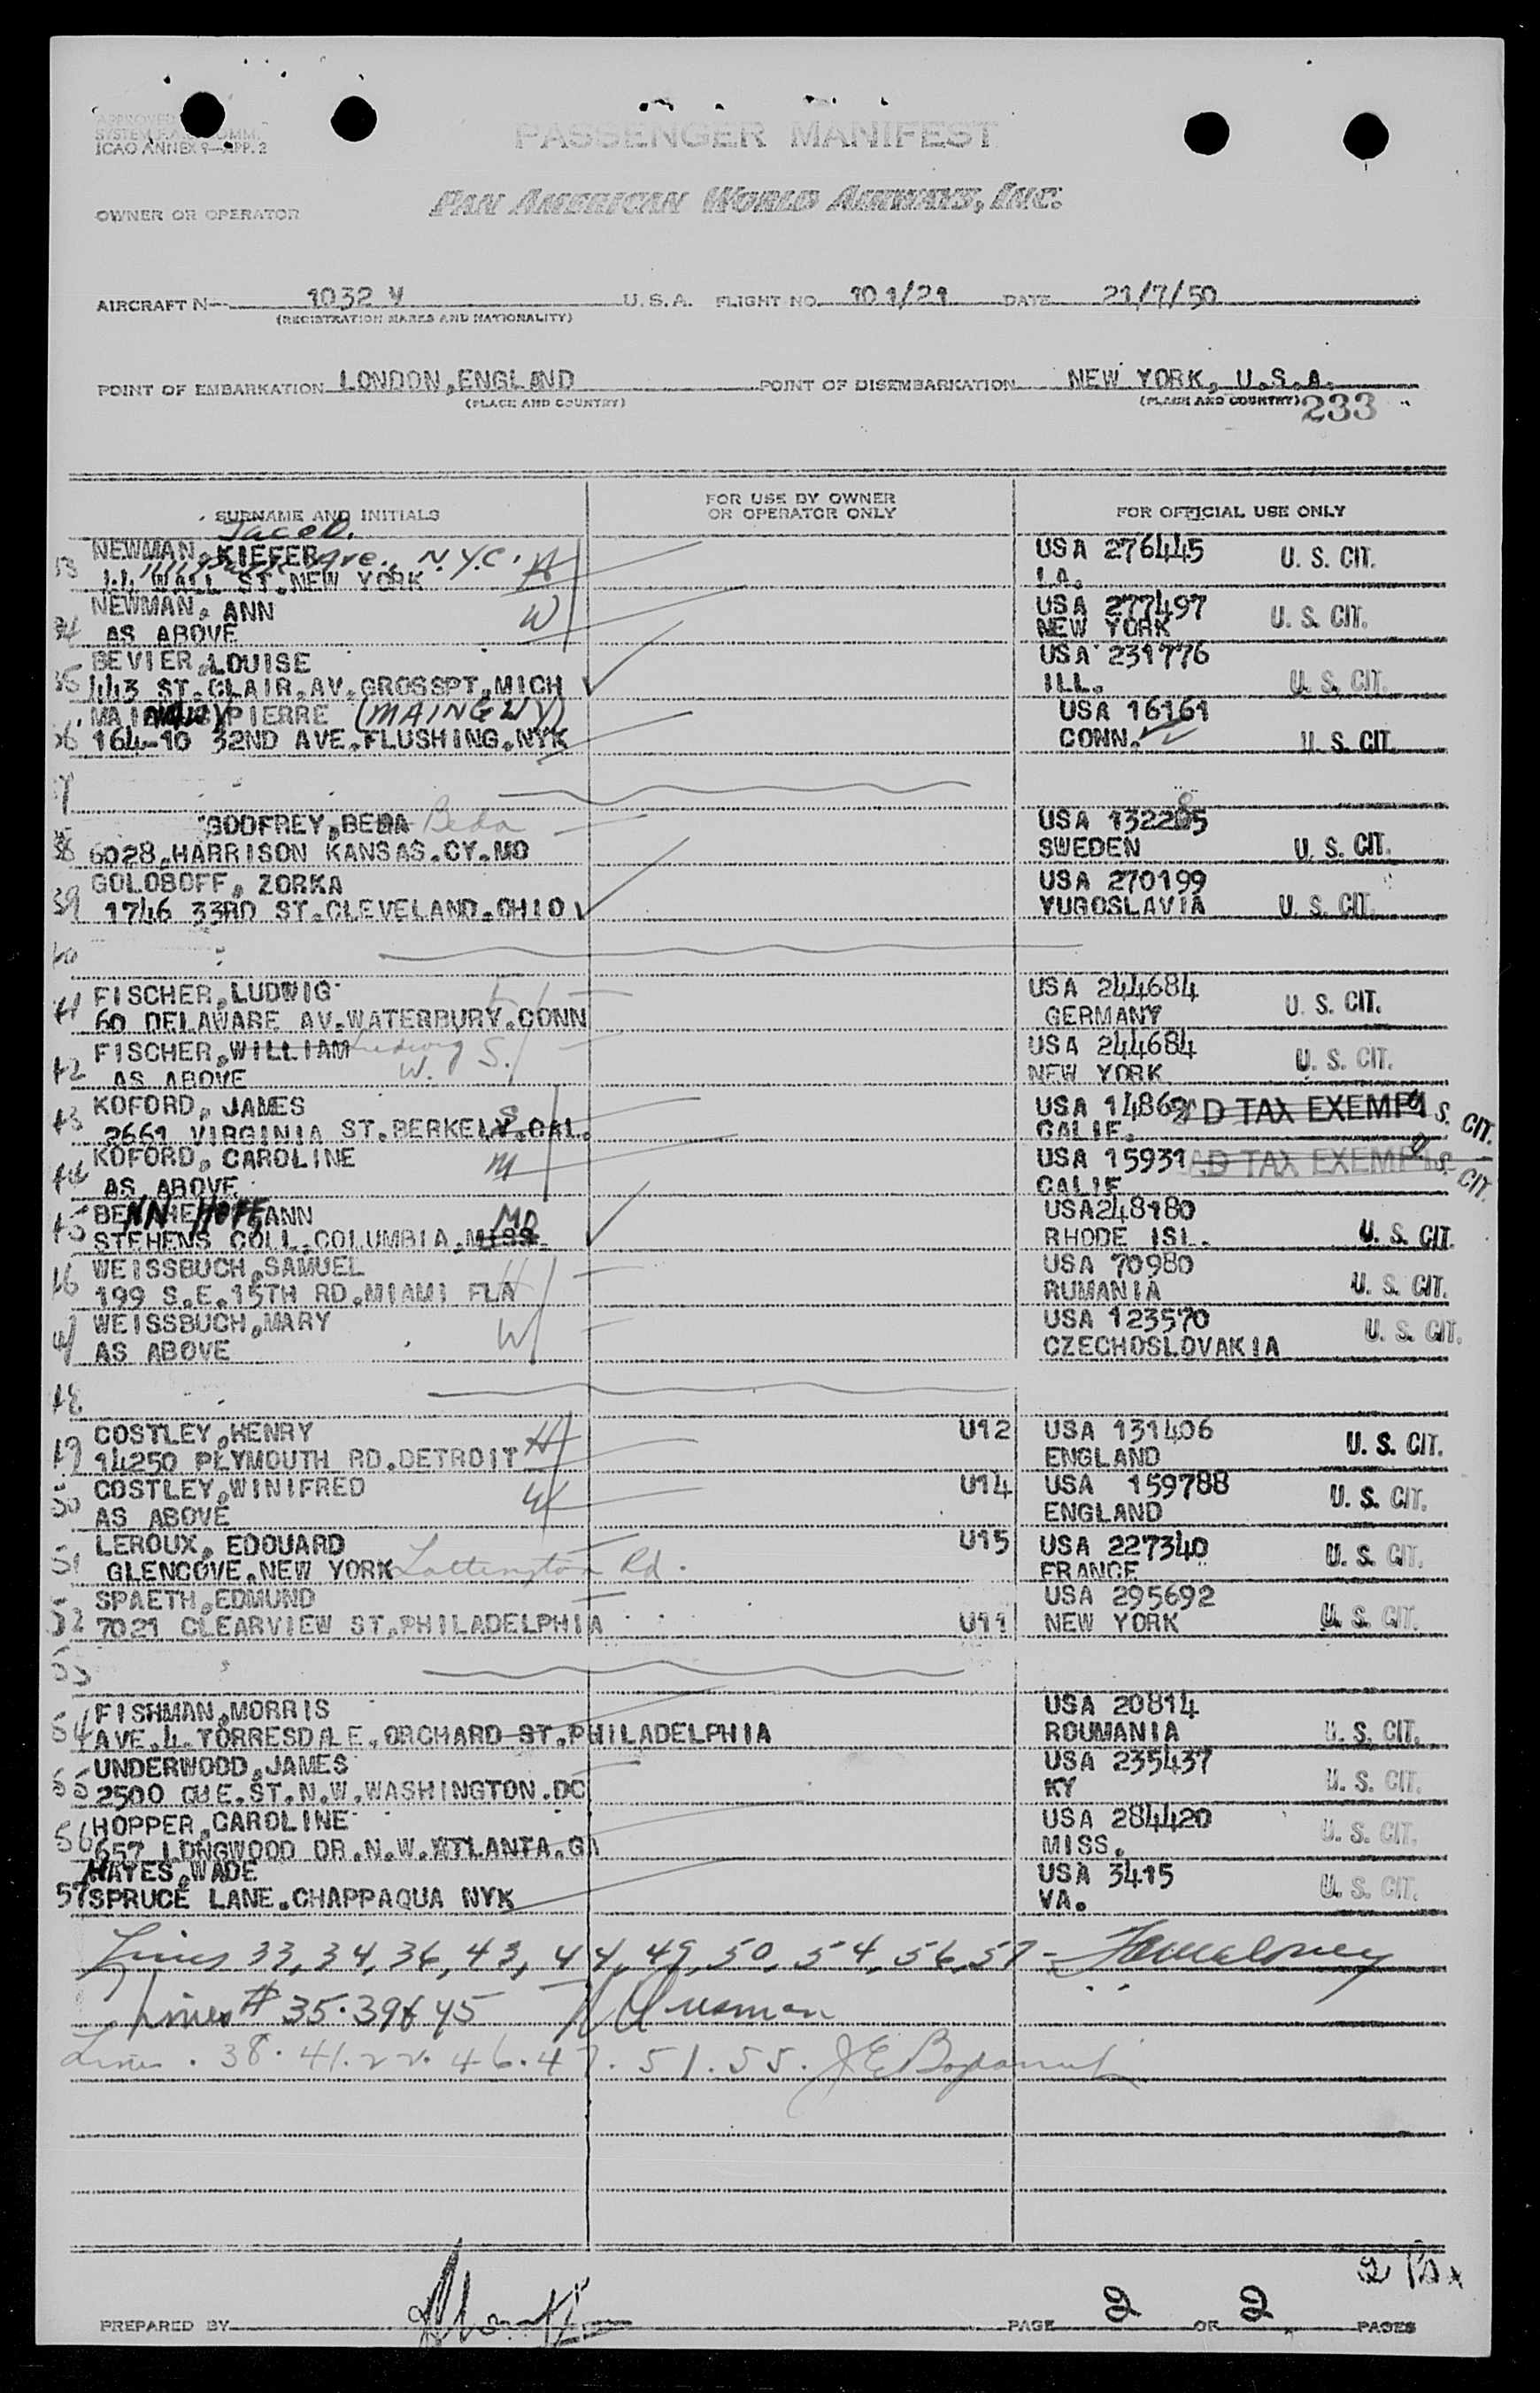 APPROVED
SYSTEM F.A.L. COMM.
ICAO ANNEX 9—APP. 2
PASSENGER MANIFEST
OWNER OR OPERATOR PAN AMERICAN WORLD AIRWAYS, INC.
AIRCRAFT N— 1032 V U.S.A. FLIGHT NO. 101/21 DATE 21/7/50
(REGISTRATION MARKS AND NATIONALITY)
POINT OF EMBARKATION LONDON, ENGLAND POINT OF DISEMBARKATION NEW YORK, U.S.A.
(PLACE AND COUNTRY) (PLACE AND COUNTRY) 233
SURNAME AND INITIALS FOR USE BY OWNER OR OPERATOR ONLY FOR OFFICIAL USE ONLY
Jacob.
33 NEWMAN, KIEFER USA 276445 U. S. CIT.
Ave., N.Y.C. H
11 WALL ST. NEW YORK IA.
34 NEWMAN, ANN W USA 277497 U. S. CIT.
AS ABOVE NEW YORK
35 BEVIER, LOUISE USA 231776
443 ST. CLAIR. AV. GROSSPT. MICH ILL. U. S. CIT.
36 PIERRE (MAINGUY) USA 16161
164-10 32ND AVE. FLUSHING. NYK CONN. U. S. CIT.
37
GODFREY, BEDA Beda USA 132285
38 6028. HARRISON KANSAS. CY. MO SWEDEN U. S. CIT.
39 GOLOBOFF, ZORKA USA 270199
1746 33RD ST. CLEVELAND. OHIO YUGOSLAVIA U. S. CIT.
40
41 FISCHER, LUDWIG F USA 244684 U. S. CIT.
60 DELAWARE AV. WATERBURY. CONN GERMANY
42 FISCHER, WILLIAM Ludwig W. S. USA 244684 U. S. CIT.
AS ABOVE NEW YORK
43 KOFORD, JAMES S USA 14862 HEAD TAX EXEMPT U. S. CIT.
2661 VIRGINIA ST. BERKELY. CAL. CALIF.
44 KOFORD, CAROLINE M USA 15931 HEAD TAX EXEMPT U. S. CIT.
AS ABOVE CALIF
45 BENNEHOFF, ANN MO USA248180
STEHENS COLL. COLUMBIA. MISS. RHODE ISL. U. S. CIT.
46 WEISSBUCH, SAMUEL H USA 70980
199 S.E. 15TH RD. MIAMI FLA RUMANIA U. S. CIT.
47 WEISSBUCH, MARY W USA 123570 U. S. CIT.
AS ABOVE CZECHOSLOVAKIA
48
49 COSTLEY, HENRY H U12 USA 131406 U. S. CIT.
14250 PLYMOUTH RD. DETROIT ENGLAND
50 COSTLEY, WINIFRED W U14 USA 159788 U. S. CIT.
AS ABOVE ENGLAND
51 LEROUX, EDOUARD U15 USA 227340 U. S. CIT.
GLENCOVE. NEW YORK Lattington Rd. FRANCE
52 SPAETH, EDMUND USA 295692
7021 CLEARVIEW ST. PHILADELPHIA U11 NEW YORK U. S. CIT.
53
54 FISHMAN, MORRIS USA 20814
AVE. 4. TORRESDALE. ORCHARD ST. PHILADELPHIA ROUMANIA U. S. CIT.
55 UNDERWOOD, JAMES USA 235437
2500 QUE. ST. N.W. WASHINGTON. DC KY U. S. CIT.
56 HOPPER, CAROLINE USA 284420 U. S. CIT.
657 LONGWOOD DR. N.W. ATLANTA. GA MISS.
HAYES, WADE USA 3415
57 SPRUCE LANE. CHAPPAQUA NYK VA. U. S. CIT.
Lines 33, 34, 36, 43, 44, 49, 50, 54, 56, 57 -
Lines # 35. 39 & 45
Lines . 38. 41. 22. 46. 47. 51. 55.
2 Pax
PREPARED BY PAGE 2 OF 2 PAGES